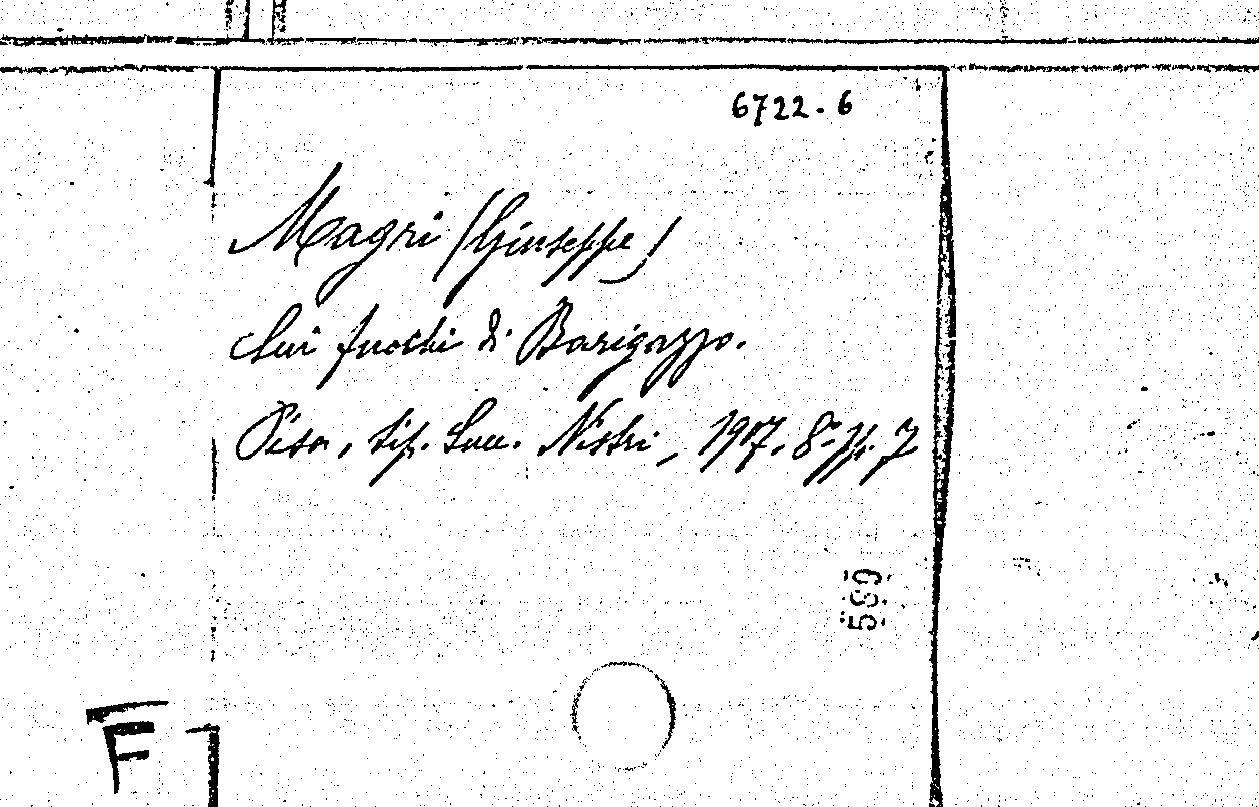 6722.6
Magri (Giuseppe)
Sui fuochi di Barigazzo.
Pisa, tip. Succ. Nistri, 1907. 8° pp. 7
569
F